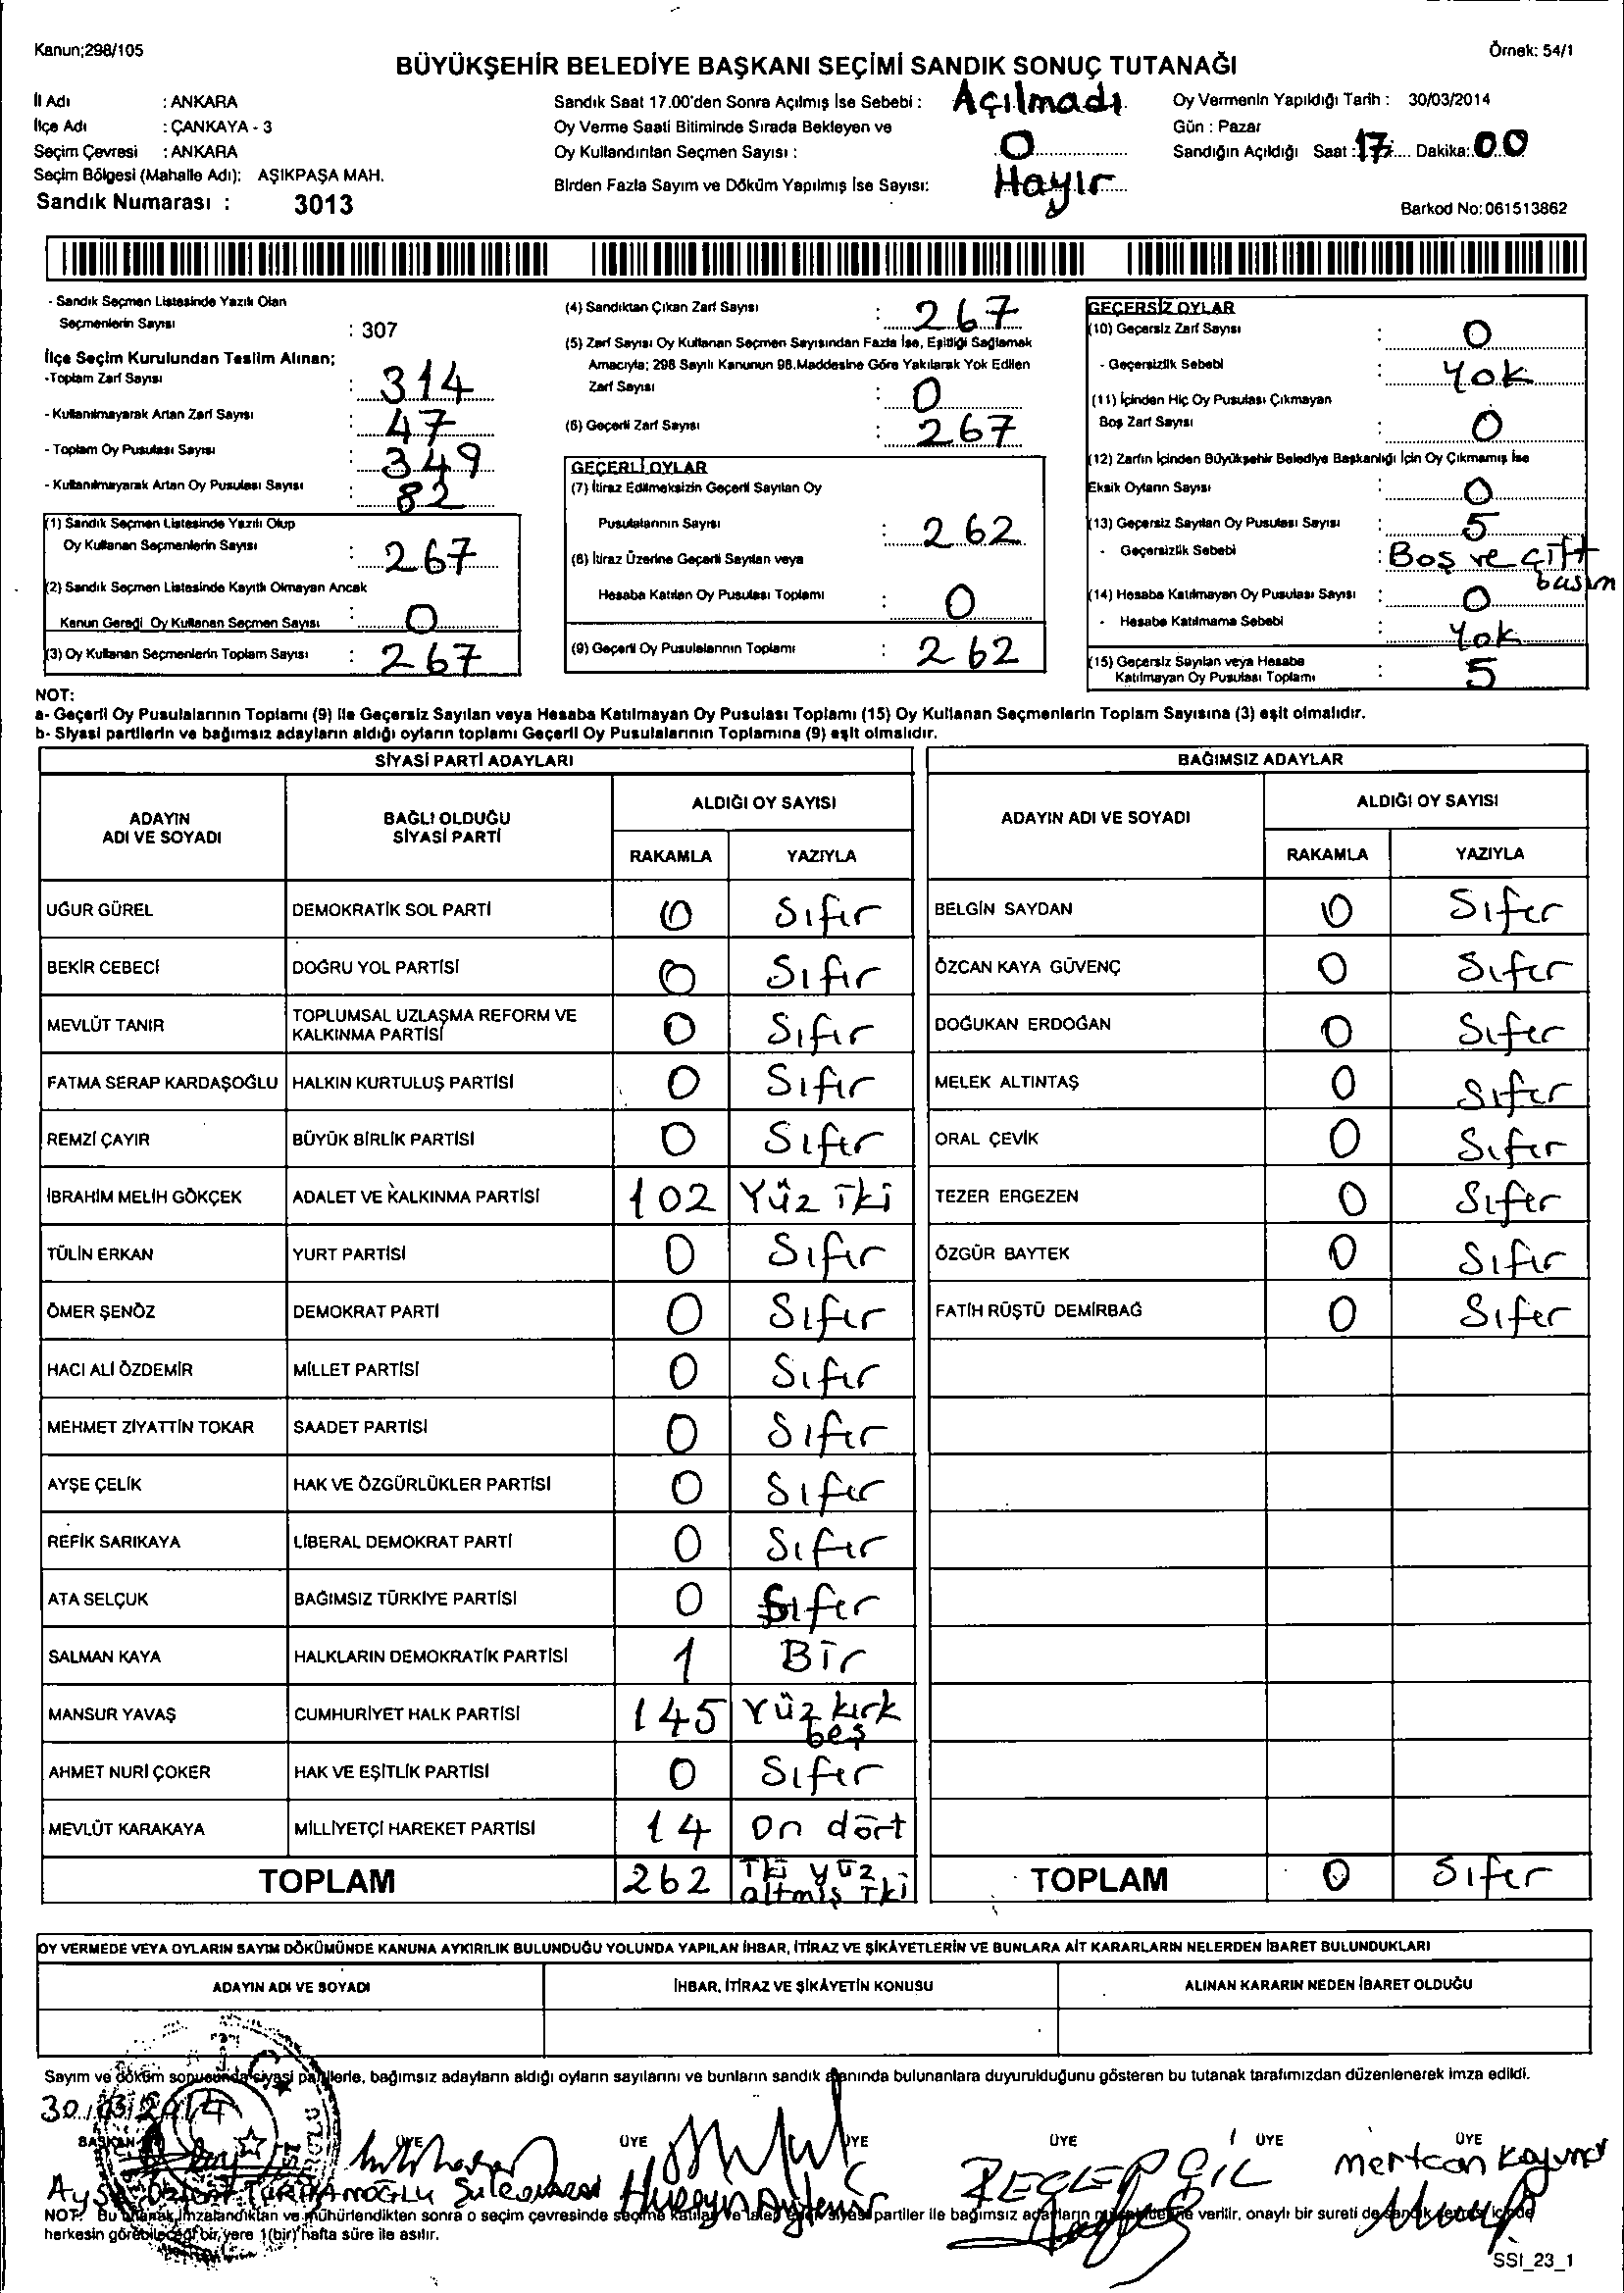 Kanun;298/105
Örnek: 54/1
BÜYÜKŞEHİR BELEDİYE BAŞKANI SEÇİMİ SANDIK SONUÇ TUTANAĞI
İl Adı : ANKARA
İlçe Adı : ÇANKAYA - 3
Seçim Çevresi : ANKARA
Seçim Bölgesi (Mahalle Adı): AŞIKPAŞA MAH.
Sandık Numarası : 3013
Sandık Saat 17.00'den Sonra Açılmış İse Sebebi : Açılmadı
Oy Verme Saati Bitiminde Sırada Bekleyen ve
Oy Kullandırılan Seçmen Sayısı : 0
Birden Fazla Sayım ve Döküm Yapılmış İse Sayısı: Hayır
Oy Vermenin Yapıldığı Tarih : 30/03/2014
Gün : Pazar
Sandığın Açıldığı Saat : 17 Dakika: 00
Barkod No: 061513862
- Sandık Seçmen Listesinde Yazılı Olan
Seçmenlerin Sayısı : 307
İlçe Seçim Kurulundan Teslim Alınan;
-Toplam Zarf Sayısı : 314
- Kullanılmayarak Artan Zarf Sayısı : 47
- Toplam Oy Pusulası Sayısı : 349
- Kullanılmayarak Artan Oy Pusulası Sayısı : 82
(1) Sandık Seçmen Listesinde Yazılı Olup
Oy Kullanan Seçmenlerin Sayısı : 267
(2) Sandık Seçmen Listesinde Kayıtlı Olmayan Ancak
Kanun Gereği Oy Kullanan Seçmen Sayısı : 0
(3) Oy Kullanan Seçmenlerin Toplam Sayısı : 267
(4) Sandıktan Çıkan Zarf Sayısı : 267
(5) Zarf Sayısı Oy Kullanan Seçmen Sayısından Fazla İse, Eşitliği Sağlamak
Amacıyla; 298 Sayılı Kanunun 98.Maddesine Göre Yakılarak Yok Edilen
Zarf Sayısı : 0
(6) Geçerli Zarf Sayısı : 267
GEÇERLİ OYLAR
(7) İtiraz Edilmeksizin Geçerli Sayılan Oy
Pusulalarının Sayısı : 262
(8) İtiraz Üzerine Geçerli Sayılan veya
Hesaba Katılan Oy Pusulası Toplamı : 0
(9) Geçerli Oy Pusulalarının Toplamı : 262
GEÇERSİZ OYLAR
(10) Geçersiz Zarf Sayısı : 0
- Geçersizlik Sebebi : Yok
(11) İçinden Hiç Oy Pusulası Çıkmayan
Boş Zarf Sayısı : 0
(12) Zarfın İçinden Büyükşehir Belediye Başkanlığı İçin Oy Çıkmamış İse
Eksik Oyların Sayısı : 0
(13) Geçersiz Sayılan Oy Pusulası Sayısı : 5
- Geçersizlik Sebebi : Boş ve çift
basım
(14) Hesaba Katılmayan Oy Pusulası Sayısı : 0
- Hesaba Katılmama Sebebi : Yok
(15) Geçersiz Sayılan veya Hesaba
Katılmayan Oy Pusulası Toplamı : 5
NOT:
a- Geçerli Oy Pusulalarının Toplamı (9) ile Geçersiz Sayılan veya Hesaba Katılmayan Oy Pusulası Toplamı (15) Oy Kullanan Seçmenlerin Toplam Sayısına (3) eşit olmalıdır.
b- Siyasi partilerin ve bağımsız adayların aldığı oyların toplamı Geçerli Oy Pusulalarının Toplamına (9) eşit olmalıdır.
SİYASİ PARTİ ADAYLARI
ADAYIN ADI VE SOYADI BAĞLI OLDUĞU SİYASİ PARTİ ALDIĞI OY SAYISI
RAKAMLA YAZIYLA
UĞUR GÜREL DEMOKRATİK SOL PARTİ 0 Sıfır
BEKİR CEBECİ DOĞRU YOL PARTİSİ 0 Sıfır
MEVLÜT TANIR TOPLUMSAL UZLAŞMA REFORM VE KALKINMA PARTİSİ 0 Sıfır
FATMA SERAP KARDAŞOĞLU HALKIN KURTULUŞ PARTİSİ 0 Sıfır
REMZİ ÇAYIR BÜYÜK BİRLİK PARTİSİ 0 Sıfır
İBRAHİM MELİH GÖKÇEK ADALET VE KALKINMA PARTİSİ 102 Yüz iki
TÜLİN ERKAN YURT PARTİSİ 0 Sıfır
ÖMER ŞENÖZ DEMOKRAT PARTİ 0 Sıfır
HACI ALİ ÖZDEMİR MİLLET PARTİSİ 0 Sıfır
MEHMET ZİYATTİN TOKAR SAADET PARTİSİ 0 Sıfır
AYŞE ÇELİK HAK VE ÖZGÜRLÜKLER PARTİSİ 0 Sıfır
REFİK SARIKAYA LİBERAL DEMOKRAT PARTİ 0 Sıfır
ATA SELÇUK BAĞIMSIZ TÜRKİYE PARTİSİ 0 Sıfır
SALMAN KAYA HALKLARIN DEMOKRATİK PARTİSİ 1 Bir
MANSUR YAVAŞ CUMHURİYET HALK PARTİSİ 145 Yüz kırk beş
AHMET NURİ ÇOKER HAK VE EŞİTLİK PARTİSİ 0 Sıfır
MEVLÜT KARAKAYA MİLLİYETÇİ HAREKET PARTİSİ 14 On dört
TOPLAM 262 İki yüz altmış iki
BAĞIMSIZ ADAYLAR
ADAYIN ADI VE SOYADI ALDIĞI OY SAYISI
RAKAMLA YAZIYLA
BELGİN SAYDAN 0 Sıfır
ÖZCAN KAYA GÜVENÇ 0 Sıfır
DOĞUKAN ERDOĞAN 0 Sıfır
MELEK ALTINTAŞ 0 Sıfır
ORAL ÇEVİK 0 Sıfır
TEZER ERGEZEN 0 Sıfır
ÖZGÜR BAYTEK 0 Sıfır
FATİH RÜŞTÜ DEMİRBAĞ 0 Sıfır
TOPLAM 0 Sıfır
OY VERMEDE VEYA OYLARIN SAYIM DÖKÜMÜNDE KANUNA AYKIRILIK BULUNDUĞU YOLUNDA YAPILAN İHBAR, İTİRAZ VE ŞİKÂYETLERİN VE BUNLARA AİT KARARLARIN NELERDEN İBARET BULUNDUKLARI
ADAYIN ADI VE SOYADI İHBAR, İTİRAZ VE ŞİKÂYETİN KONUSU ALINAN KARARIN NEDEN İBARET OLDUĞU
Sayım ve döküm sonucunda siyasi partilerle, bağımsız adayların aldığı oyların sayılarını ve bunların sandık alanında bulunanlara duyurulduğunu gösteren bu tutanak tarafımızdan düzenlenerek imza edildi.
30/03/2014
BAŞKAN ÜYE ÜYE ÜYE ÜYE ÜYE ÜYE
RECEP GİL mertcan
NOT: Bu tutanak imzalandıktan ve mühürlendikten sonra o seçim çevresinde seçime katılan ve talep eden siyasi partiler ile bağımsız adayların verilir, onaylı bir sureti de sandık içinde
herkesin görebileceği bir yere 1(bir) hafta süre ile asılır.
SSI_23_1